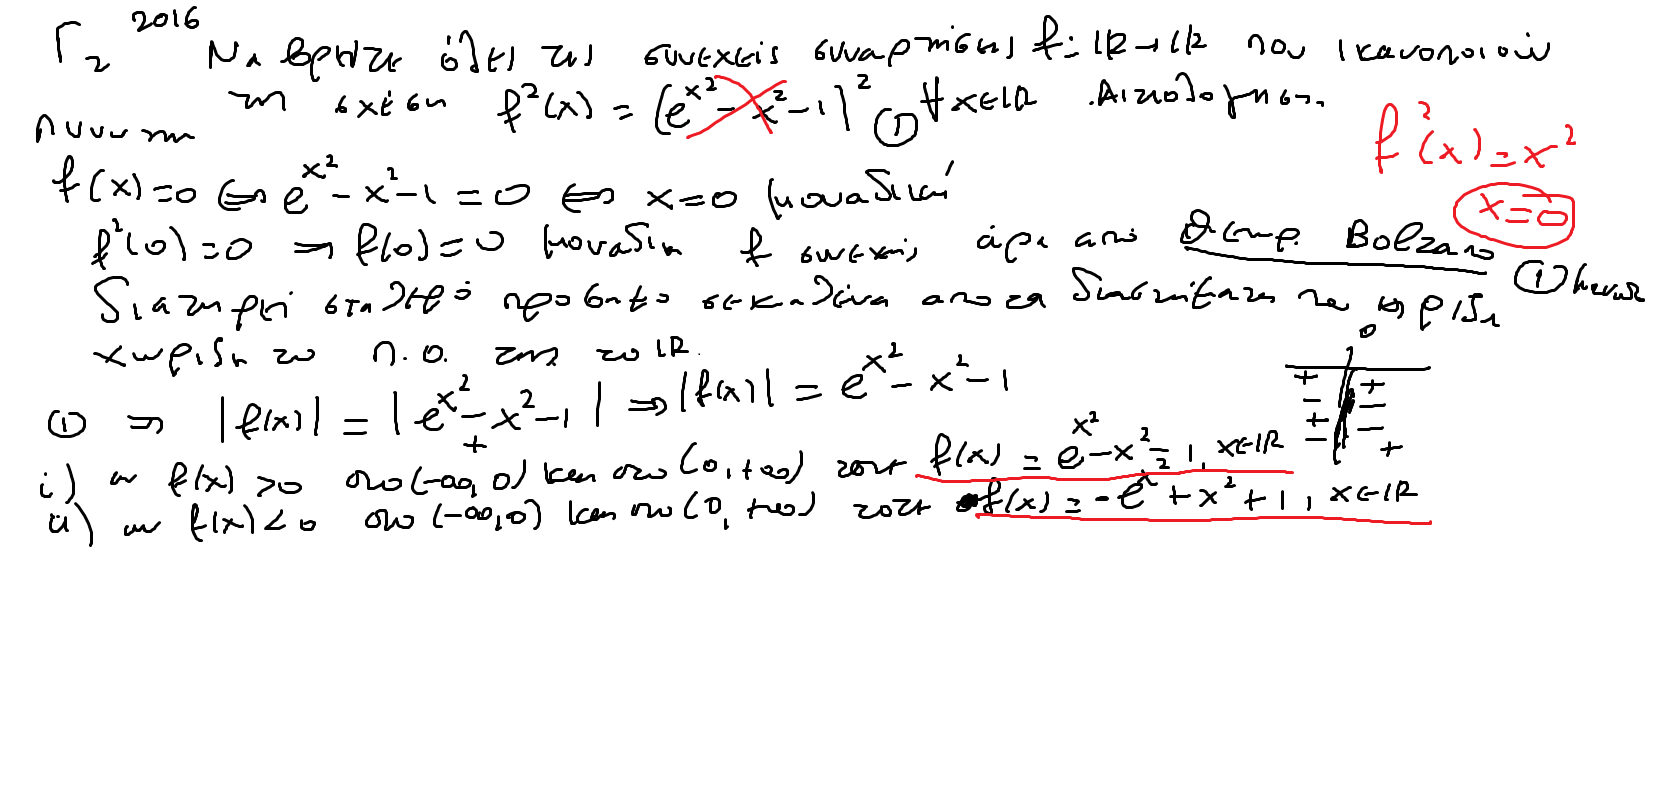 Γ₂ 2016 Να βρείτε όλες τις συνεχείς συναρτήσεις f: ℝ→ℝ που ικανοποιούν
τη σχέση f²(x) = (e^{x²} - x² - 1)² ① ∀x∈ℝ. Αιτιολόγηση.
f²(x) = x²
x = 0
f(x)=0 ⇔ e^{x²} - x² - 1 = 0 ⇔ x=0 μοναδική
f²(0)=0 ⇒ f(0)=0 μοναδική f συνεχής άρα από θεώρ. Bolzano
διατηρεί σταθερό πρόσημο σε καθένα από τα διαστήματα που η ρίζα ①
χωρίζει το π.ο. της το ℝ.
0
① ⇒ |f(x)| = |e^{x²} - x² - 1| ⇒ |f(x)| = e^{x²} - x² - 1
+
+ +
- -
+ -
- +
i) αν f(x) > 0 στο (-∞, 0) και στο (0, +∞) τότε f(x) = e^{x²} - x² - 1, x∈ℝ
ii) αν f(x) < 0 στο (-∞, 0) και στο (0, +∞) τότε f(x) = -e^{x²} + x² + 1, x∈ℝ